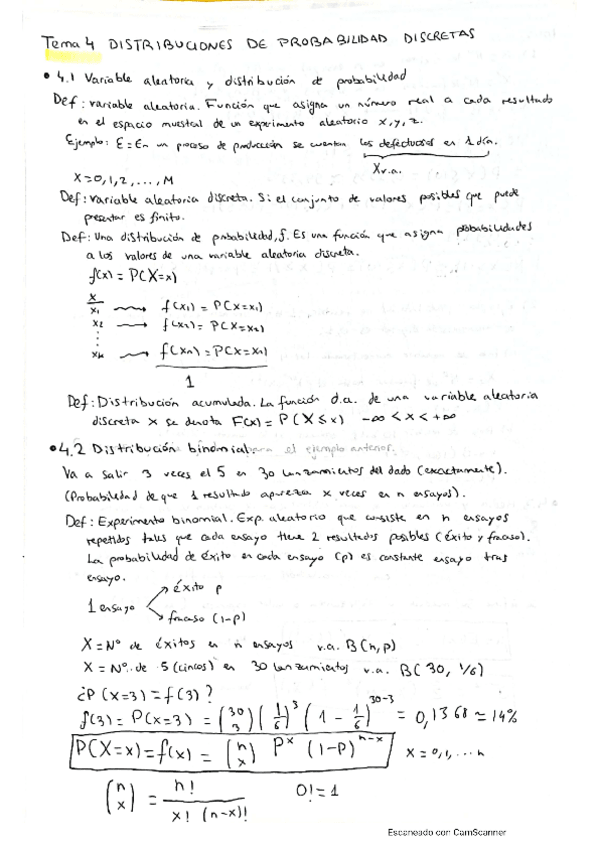 Tema 4 DISTRIBUCIONES DE PROBABILIDAD DISCRETAS
• 4.1 Variable aleatoria y distribución de probabilidad
Def: variable aleatoria. Función que asigna un número real a cada resultado
en el espacio muestral de un experimento aleatorio x, y, z.
Ejemplo: E = En un proceso de producción se cuentan los defectuosos en 1 día.
X v.a.
X = 0, 1, 2, ..., M
Def: variable aleatoria discreta. Si el conjunto de valores posibles que puede
presentar es finito.
Def: Una distribución de probabilidad, f. Es una función que asigna probabilidades
a los valores de una variable aleatoria discreta.
f(x) = P(X=x)
x
x₁ → f(x₁) = P(X=x₁)
x₂ → f(x₂) = P(X=x₂)
⋮
xₙ → f(xₙ) = P(X=xₙ)
1
Def: Distribución acumulada. La función d.a. de una variable aleatoria
discreta X se denota F(x) = P(X ≤ x) -∞ < x < +∞
• 4.2 Distribución binomial. para el ejemplo anterior.
Va a salir 3 veces el 5 en 30 lanzamientos del dado (exactamente).
(Probabilidad de que 1 resultado aparezca x veces en n ensayos).
Def: Experimento binomial. Exp. aleatorio que consiste en n ensayos
repetidos tales que cada ensayo tiene 2 resultados posibles (éxito y fracaso).
La probabilidad de éxito en cada ensayo (p) es constante ensayo tras
ensayo.
éxito p
1 ensayo
fracaso (1-p)
X = Nº de éxitos en n ensayos v.a. B(n,p)
X = Nº. de 5 (cincos) en 30 lanzamientos v.a. B(30, 1/6)
¿P(X=3) = f(3)?
f(3) = P(X=3) = (30 3) (1/6)³ (1 - 1/6)³⁰⁻³ = 0,1368 ≃ 14%
P(X=x) = f(x) = (n x) Pˣ (1-P)ⁿ⁻ˣ x = 0, 1, ... n
(n x) = n! / x! (n-x)! 0! = 1
Escaneado con CamScanner